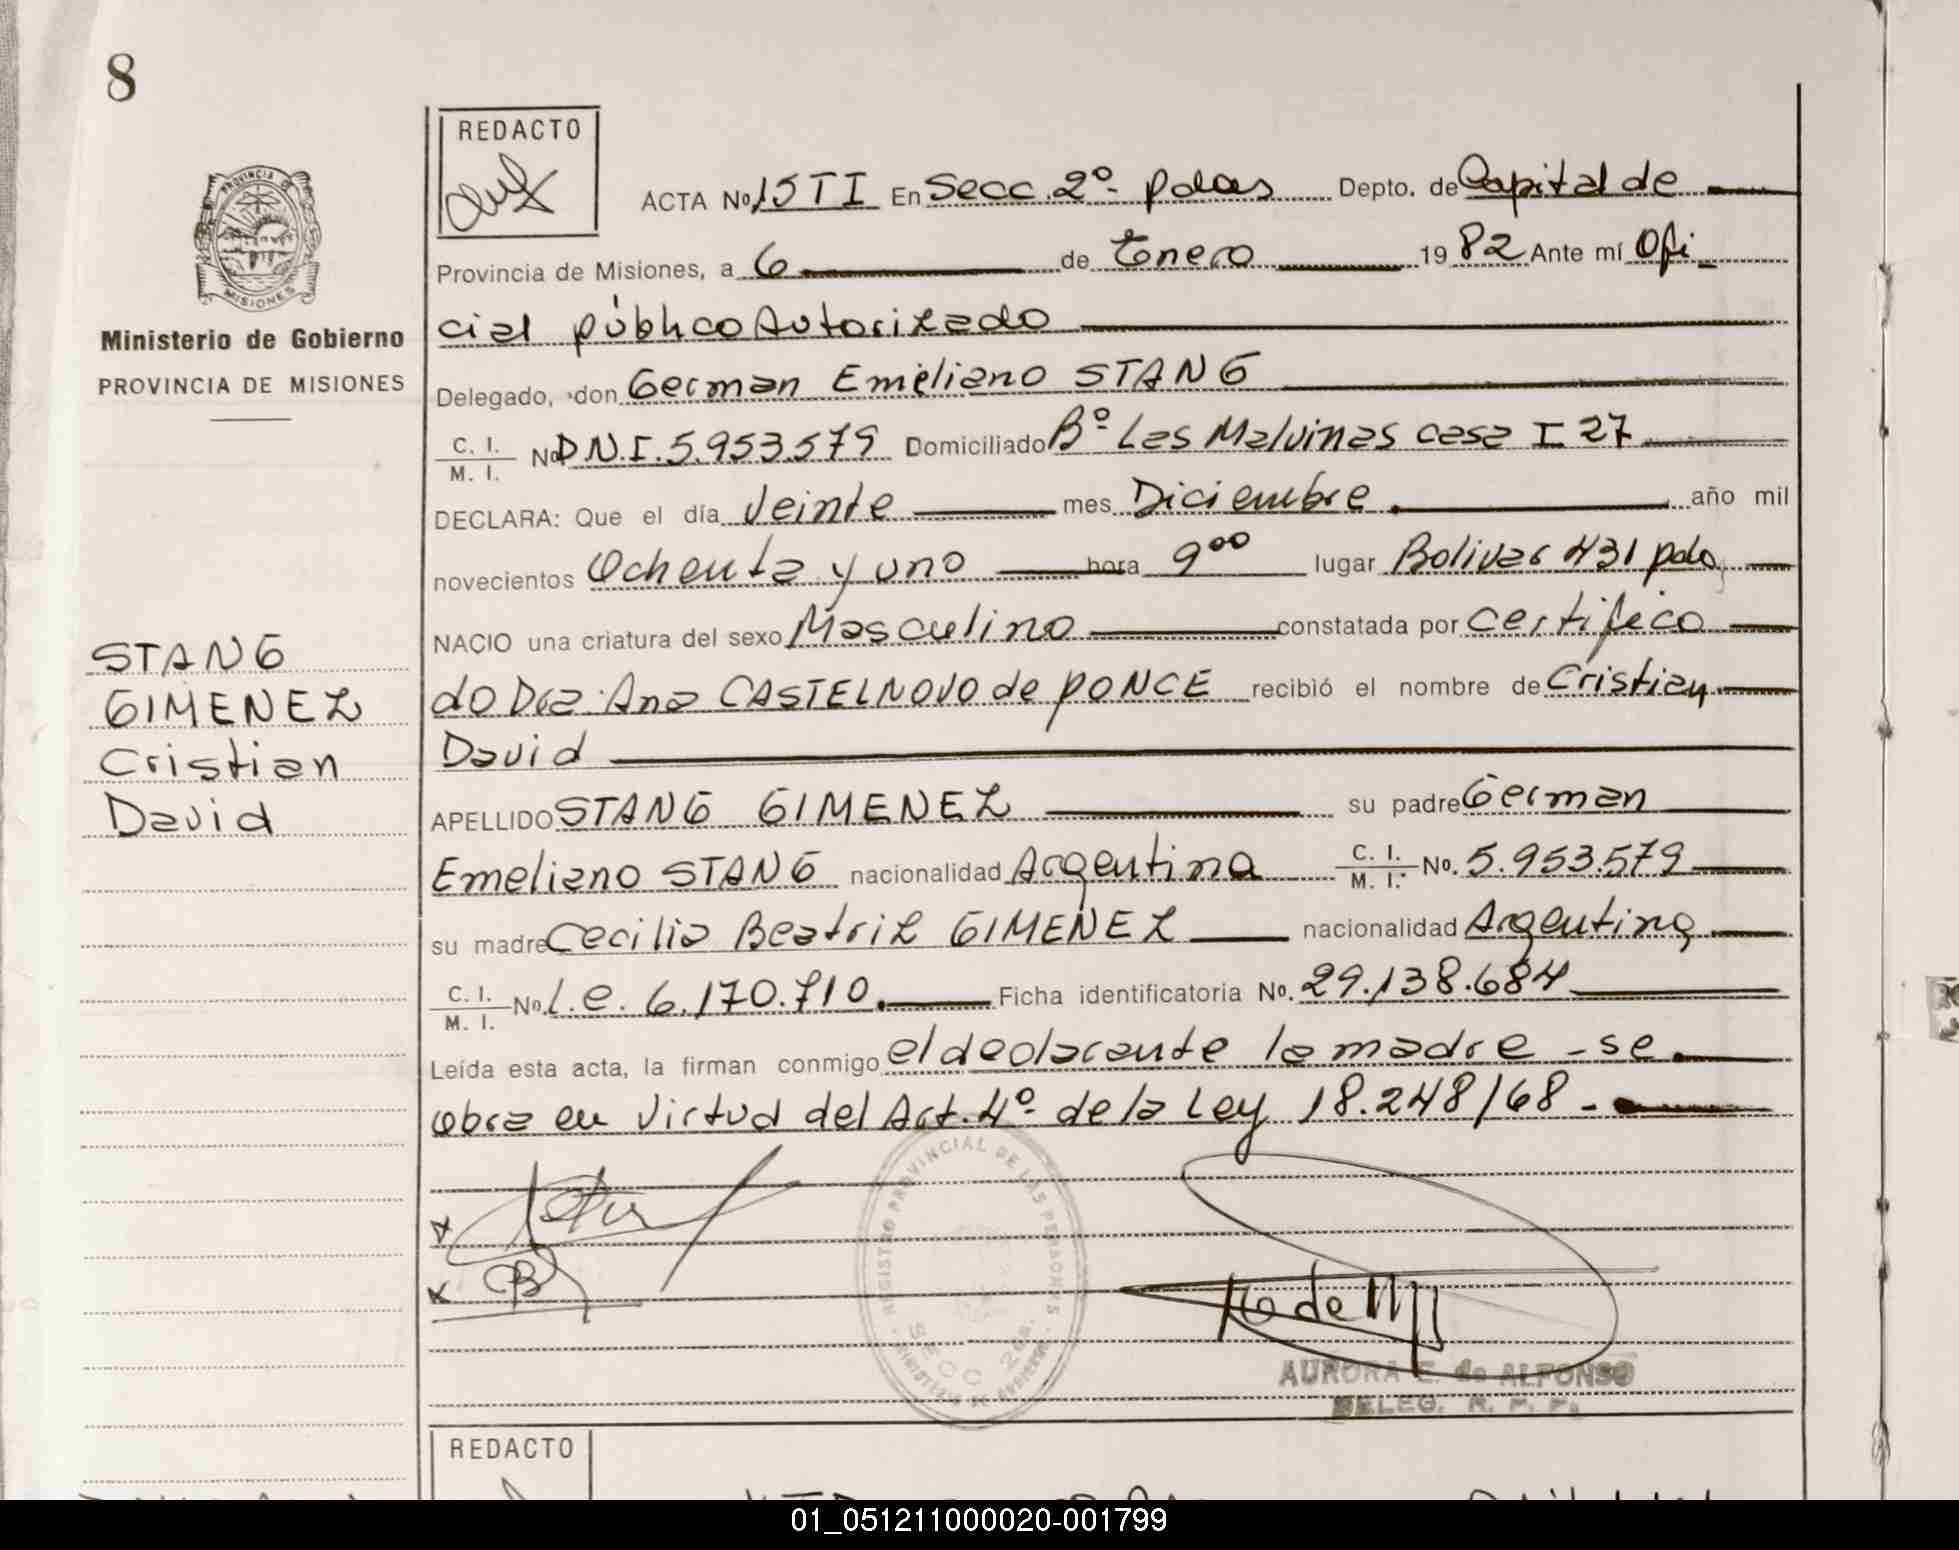 8
REDACTO
ACTA No 15 T I En Secc. 2º- Pdas Depto. de Capital de
Provincia de Misiones, a 6 de Enero 1982 Ante mí Ofi
cial público Autorizado
Delegado, don German Emeliano STANG
C. I. / M. I. No D.N.I. 5.953.579 Domiciliado Bº Las Malvinas casa I 27
DECLARA: Que el día Veinte mes Diciembre año mil
novecientos Ochenta y uno hora 9⁰⁰ lugar Bolivar 431 pdas
NACIO una criatura del sexo Masculino constatada por certifica
do Dra. Ana CASTELNOVO de PONCE recibió el nombre de Cristian
David
APELLIDO STANG GIMENEZ su padre German
Emeliano STANG nacionalidad Argentina C. I. / M. I. No. 5.953.579
su madre Cecilia Beatriz GIMENEZ nacionalidad Argentina
C. I. / M. I. No L.C. 6.170.710 Ficha identificatoria No. 29.138.684
Leída esta acta, la firman conmigo el declarante la madre - se
obra en virtud del Art. 4º- de la Ley 18.248/68 -
PROVINCIA DE
MISIONES
Ministerio de Gobierno
PROVINCIA DE MISIONES
STANG
GIMENEZ
Cristian
David
REGISTRO PROVINCIAL DE LAS PERSONAS
SECC 2da.
MINISTERIO DE GOBIERNO
AURORA E. de ALFONSO
DELEG. R. P. P.
REDACTO
01_051211000020-001799